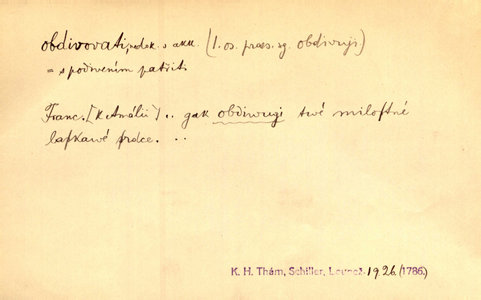 obdivovati, nedok. s akk. (1. os. praes. sg. obdivuji)
= s podivením patřiti.
Franc. [k Amálii] .. gak obdiwugi twé miloſtné
laſkawé ſrdce. ..
K. H. Thám, Schiller, Loupež. 1926 (1786.)